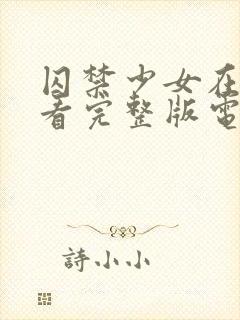 囚禁少女在
看完整版電
詩小小